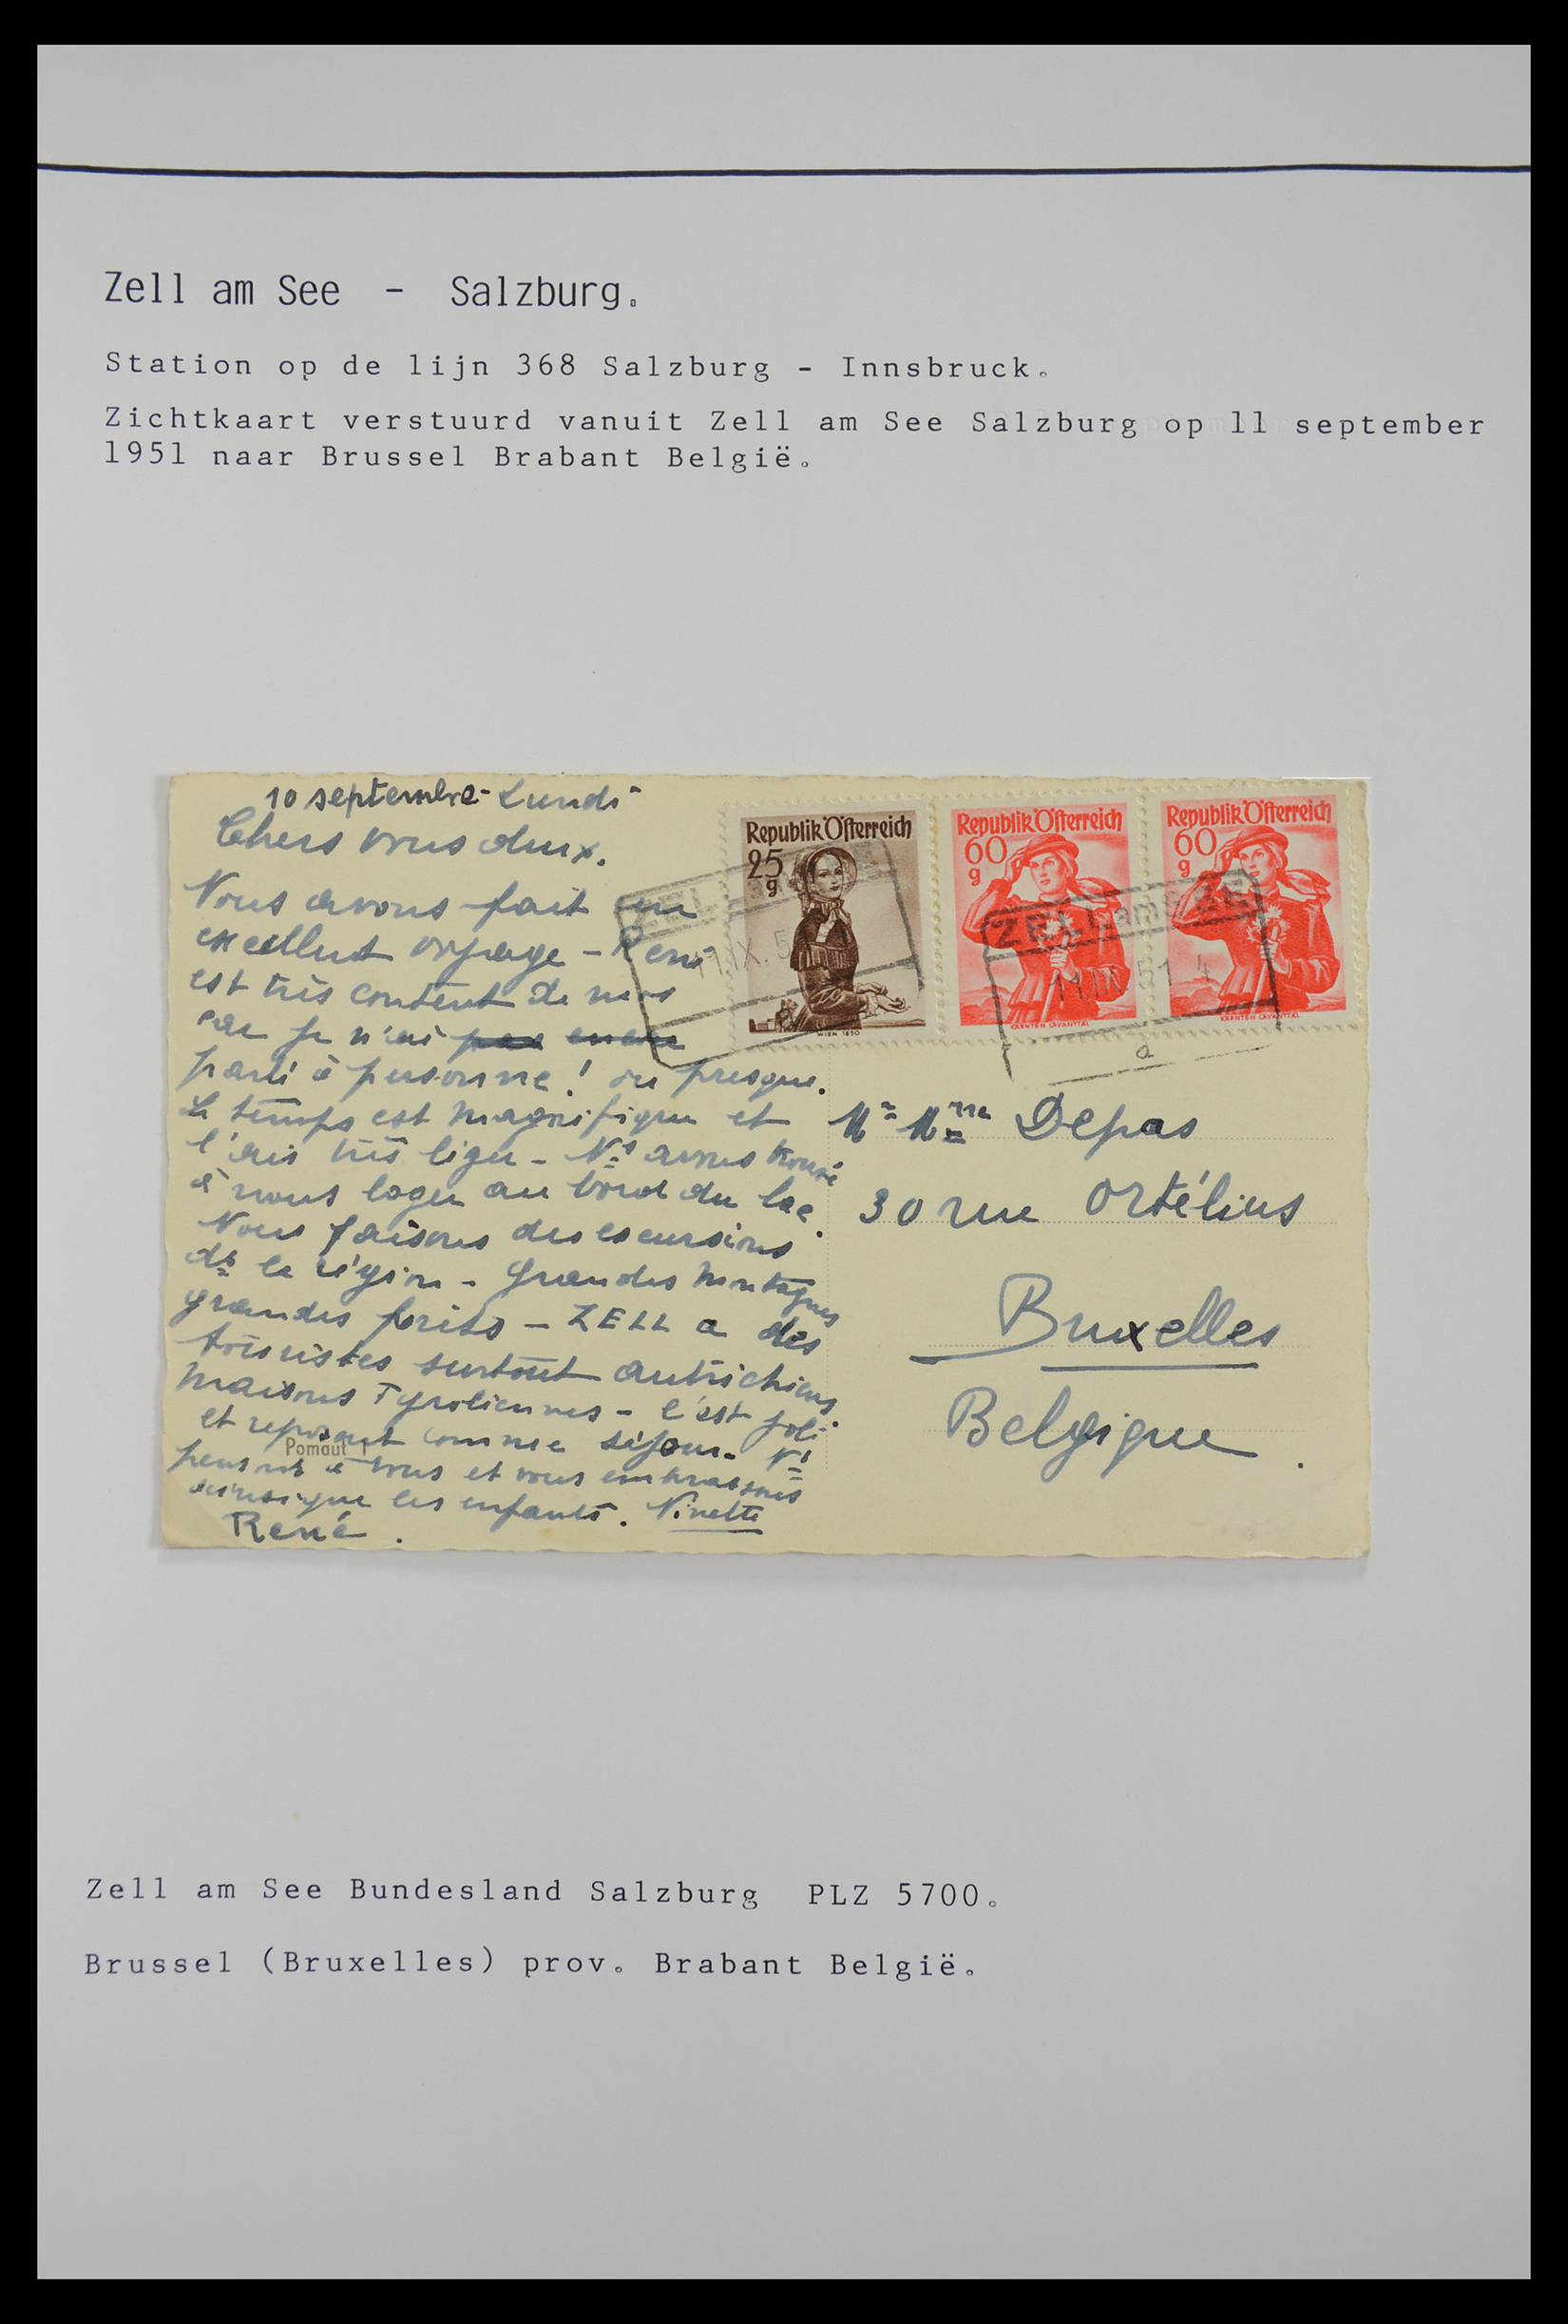 Zell am See - Salzburg.
Station op de lijn 368 Salzburg - Innsbruck.
Zichtkaart verstuurd vanuit Zell am See Salzburg op 11 september
1951 naar Brussel Brabant België.
10 septembre - Lundi -
Chers vous deux.
Nous avons fait un
excellent voyage - René
est très content de moi
car je n'ai pas encore
parlé à personne ! ou presque.
Le temps est magnifique et
l'air très léger - Ns avons trouvé
à nous loger au bord du lac.
Nous faisons des escursions
ds la région - Grandes montagnes
grandes forêts - ZELL a des
touristes surtout autrichiens
maisons Tyroliennes - C'est joli
et reposant comme séjour. Ns
pensons à vous et vous embrassons
ainsi que les enfants. Ninette
René.
Pomaut
Republik Österreich
25
g
WIEN 1850
Republik Österreich
60
g
KÄRNTEN LAVANTTAL
Republik Österreich
60
g
KÄRNTEN LAVANTTAL
ZELL
11.IX.5
ZELL am SEE
11.IX.51 4
a
Mr Mme Depas
30 rue Ortélius
Bruxelles
Belgique.
Zell am See Bundesland Salzburg PLZ 5700.
Brussel (Bruxelles) prov. Brabant België.